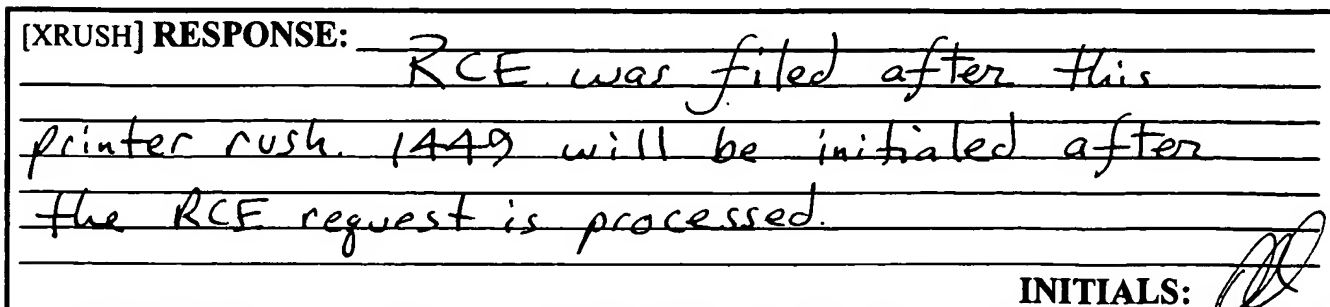 [XRUSH] RESPONSE:
RCE was filed after this
printer rush. 1449 will be initialed after
the RCE request is processed.
INITIALS: